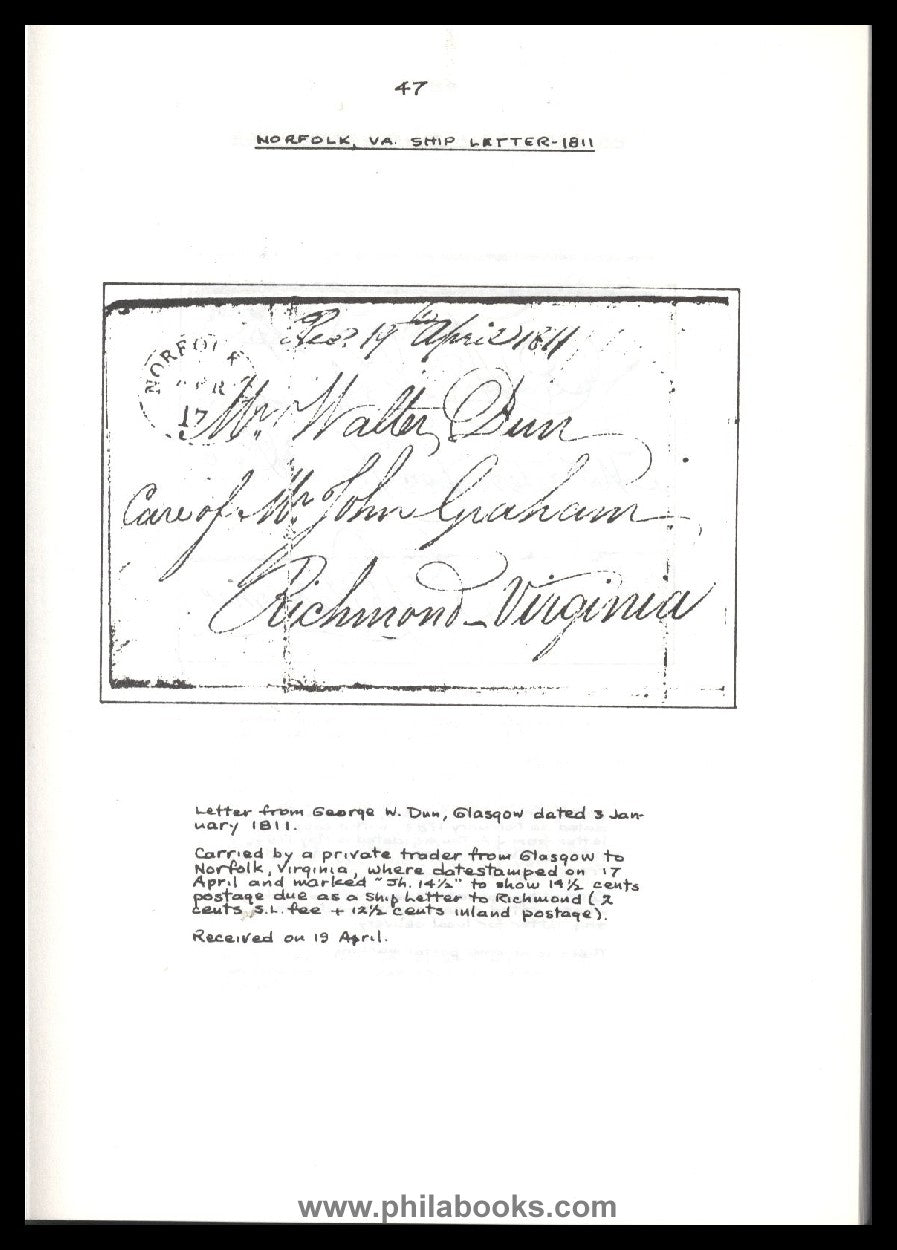 47
NORFOLK, VA. SHIP LETTER-1811
Rec? 19th April 1811
NORFOLK
APR
17
Mr. Walter Dun
Care of Mr. John Graham
Richmond - Virginia
Letter from George W. Dun, Glasgow dated 3 Jan-
uary 1811.
Carried by a private trader from Glasgow to
Norfolk, Virginia, where datestamped on 17
April and marked "Sh. 14½" to show 14½ cents
postage due as a Ship Letter to Richmond (2
cents S.L. fee + 12½ cents inland postage).
Received on 19 April.
www.philabooks.com